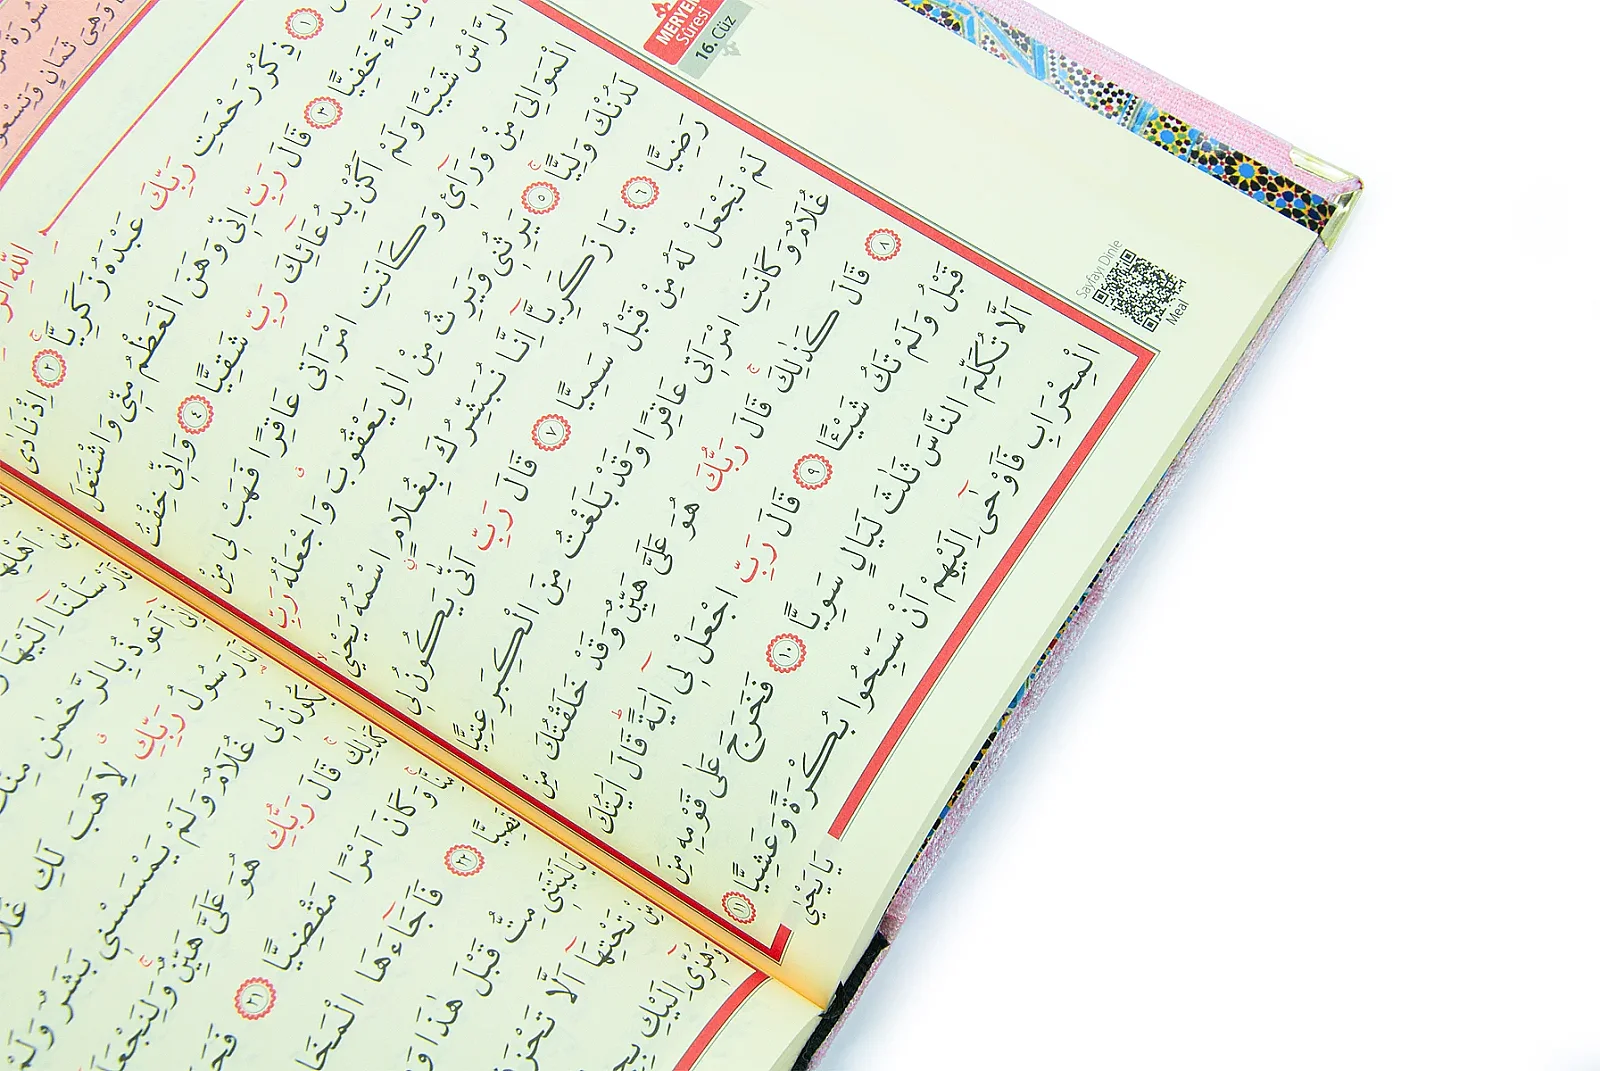 سُورَةُ مَرْ
وَهِيَ ثَمَانٍ وَتِسْعُو
MERYEM Sûresi
16. Cüz
اللّٰهِ الرَّ
١ ذِكْرُ رَحْمَتِ رَبِّكَ عَبْدَهُ زَكَرِيَّا ٢ اِذْ نَادٰى
نِدَٓاءً خَفِيًّا ٣ قَالَ رَبِّ اِنِّى وَهَنَ الْعَظْمُ مِنِّى وَاشْتَعَلَ
الرَّأْسُ شَيْبًا وَلَمْ اَكُنْ بِدُعَٓائِكَ رَبِّ شَقِيًّا ٤ وَاِنِّى خِفْتُ
الْمَوَالِىَ مِنْ وَرَٓائِى وَكَانَتِ امْرَاَتِى عَاقِرًا فَهَبْ لِى مِنْ
لَدُنْكَ وَلِيًّا ٥ يَرِثُنِى وَيَرِثُ مِنْ اٰلِ يَعْقُوبَ وَاجْعَلْهُ رَبِّ
رَضِيًّا ٦ يَا زَكَرِيَّٓا اِنَّا نُبَشِّرُكَ بِغُلَامٍ اسْمُهُ يَحْيٰى
لَمْ نَجْعَلْ لَهُ مِنْ قَبْلُ سَمِيًّا ٧ قَالَ رَبِّ اَنّٰى يَكُونُ لِى
غُلَامٌ وَكَانَتِ امْرَاَتِى عَاقِرًا وَقَدْ بَلَغْتُ مِنَ الْكِبَرِ عِتِيًّا
٨ قَالَ كَذٰلِكَ قَالَ رَبُّكَ هُوَ عَلَىَّ هَيِّنٌ وَقَدْ خَلَقْتُكَ مِنْ
قَبْلُ وَلَمْ تَكُ شَيْـًٔا ٩ قَالَ رَبِّ اجْعَلْ لِٓى اٰيَةً قَالَ اٰيَتُكَ
اَلَّا تُكَلِّمَ النَّاسَ ثَلٰثَ لَيَالٍ سَوِيًّا ١٠ فَخَرَجَ عَلٰى قَوْمِهِ مِنَ
الْمِحْرَابِ فَاَوْحٰٓى اِلَيْهِمْ اَنْ سَبِّحُوا بُكْرَةً وَعَشِيًّا ١١
يَا يَحْيٰى
Sayfayı Dinle
Meal
اَهْلِهَا
فَاَرْسَلْنَٓا اِلَيْهَا
اِنِّٓى اَعُوذُ بِالرَّحْمٰنِ مِنْكَ
رَسُولُ رَبِّكِ لِاَهَبَ لَكِ غُلَا
يَكُونُ لِى غُلَامٌ وَلَمْ يَمْسَسْنِى بَشَرٌ وَلَمْ
كَذٰلِكِ قَالَ رَبُّكِ هُوَ عَلَىَّ هَيِّنٌ وَلِنَجْعَلَ
مِنَّا وَكَانَ اَمْرًا مَقْضِيًّا ٢١ فَحَ
قَصِيًّا ٢٢ فَاَجَٓاءَهَا الْمَخَا
يَا لَيْتَنِى مِتُّ قَبْلَ هٰذَا وَ
مِنْ تَحْتِهَٓا اَلَّا تَحْزَ
وَهُزِّٓى اِلَيْكِ بِجِ